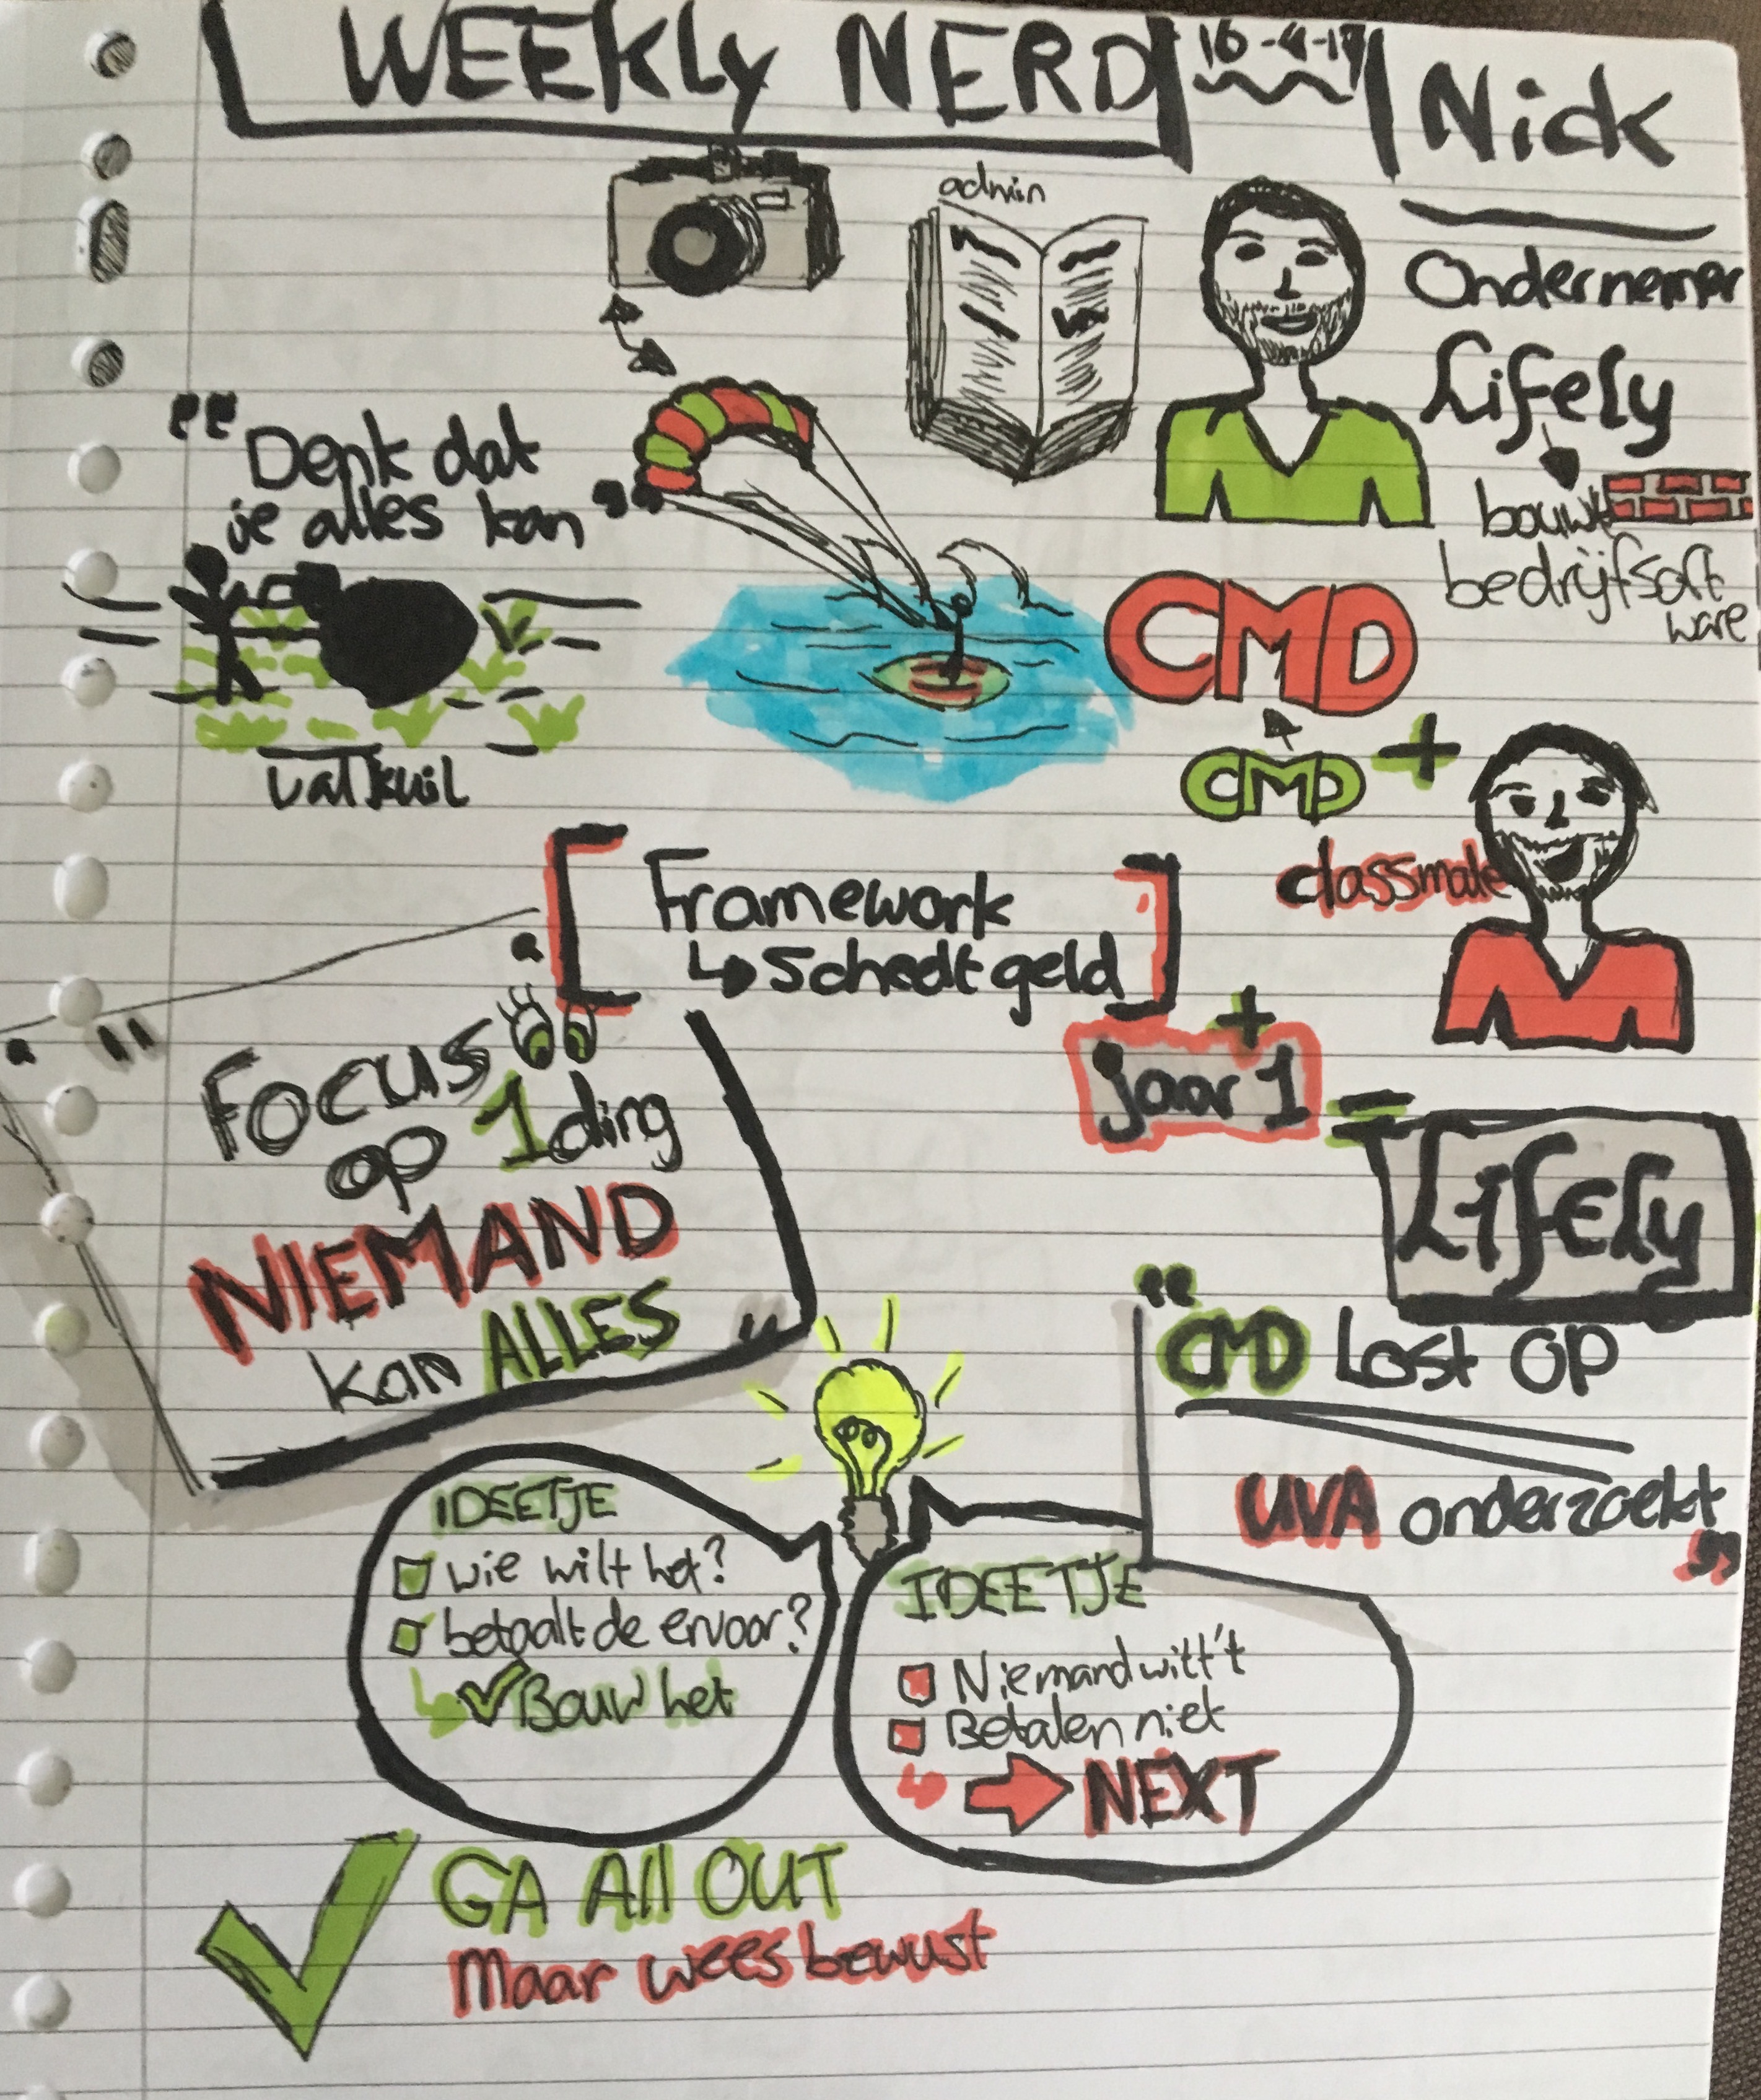 WEEKLY NERD
16-4-17
Nick
admin
Ondernemer
Lifely
bouwt
bedrijfsoft
ware
"Denk dat
je alles kan"
valkuil
CMD
CMD +
classmate
Framework
↳ Scheelt geld
+
jaar 1
=
Lifely
"Focus
op 1 ding
NIEMAND
kan ALLES"
"CMD Lost OP
UVA onderzoekt"
IDEETJE
wie wilt het?
betaalt de ervoor?
↳ ✓ Bouw het
IDEETJE
Niemand wilt 't
Betalen niet
↳ → NEXT
GA All OUT
Maar wees bewust